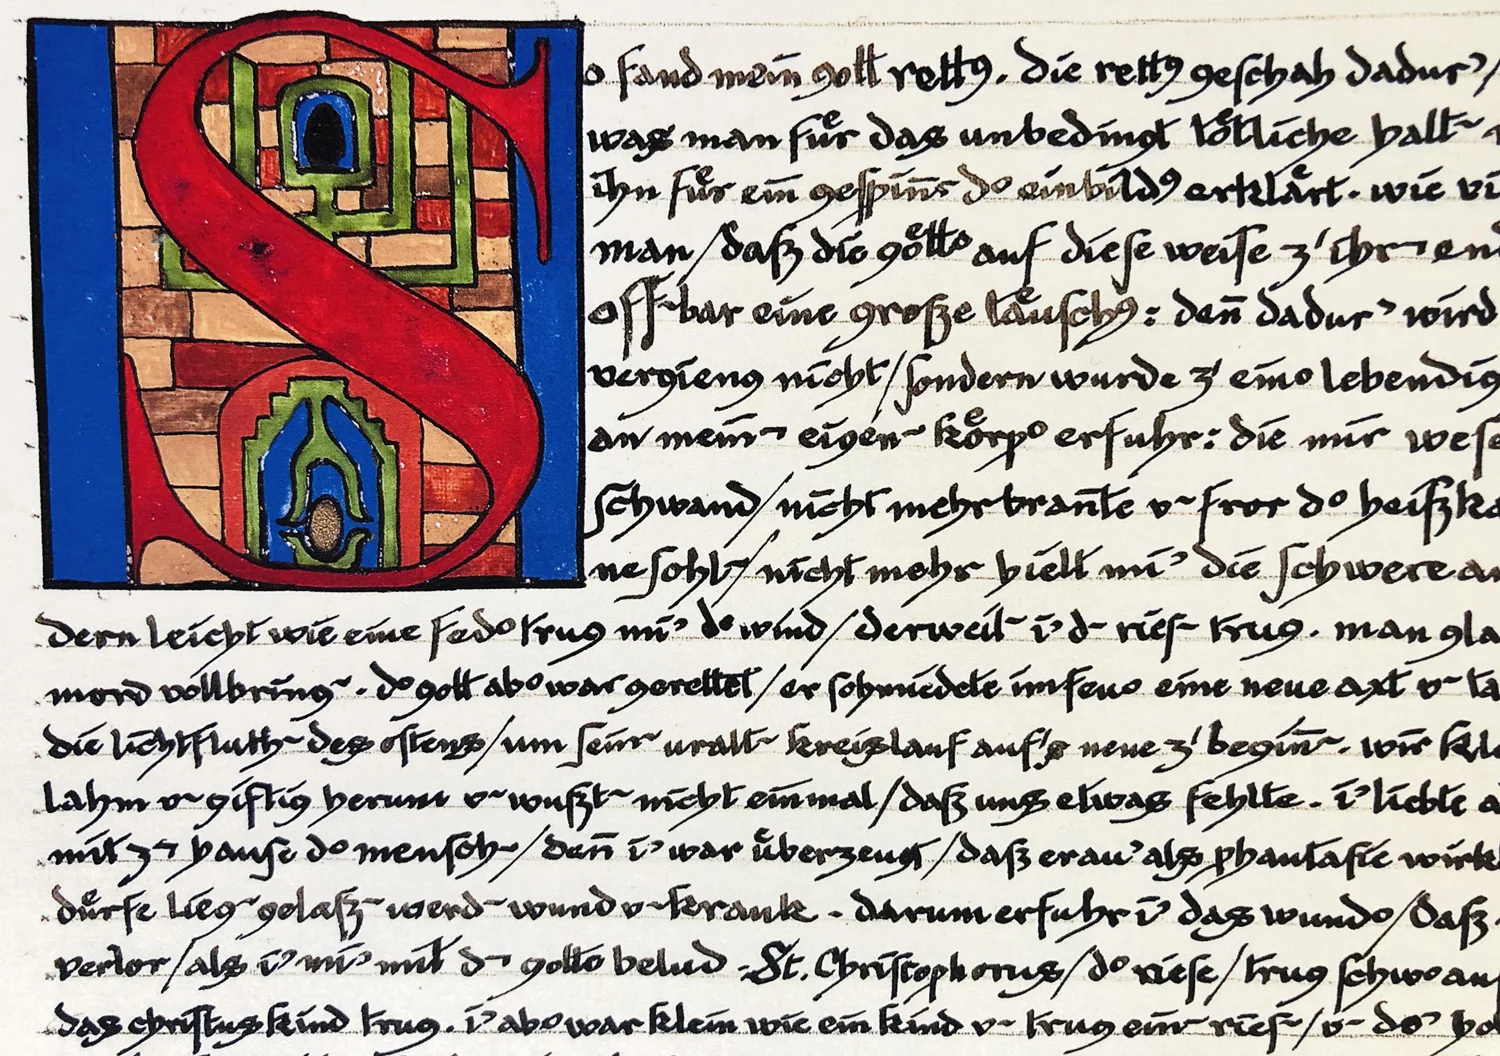 So fand mein gott rettg. die rettg geschah dadur'/
was man für das unbedingt tötliche halt~
ihn für ein gespinñs d° einbildg erklärt. wie vi
man/daß die gött° auf diese weise z' ihr¬ end
off~bar eine große täuschg: deñ dadur' wird
vergieng nicht/sondern wurde z' ein° lebendig
an mein¬ eigen~ körp° erfuhr: die mir wese
schwand/nicht mehr brañte v~ fror d° heißka
ne sohl~/nicht mehr hielt mi' die schwere an
dern leicht wie eine fed° trug mi' d° wind/derweil~ i' d~ ries~ trug. man gla
mord vollbring~. d° gott ab° war gerettet/er schmiedete im feu° eine neue axt v~ ta
die lichtfluth~ des ostens/um sein~ uralt~ kreislauf auf's neue z' begiñ~. wir kle
lahm v~ giftig herum v~ wußt~ nicht einmal/daß uns etwas fehlte. i' liebte
mit z¬ hause d° mensch~/deñ i' war überzeugt/daß er au' als phantasie wirkl
dürfe lieg~ gelaß~ werd~ wund v~ krank. darum erfuhr i' das wund°/daß
verlor/als i' mi' mit d¬ gotte belud. St. Christophorus/d° riese/trug schw° an
das christuskind trug. i' ab° war klein wie ein kind v~ trug ein~ ries~/v~